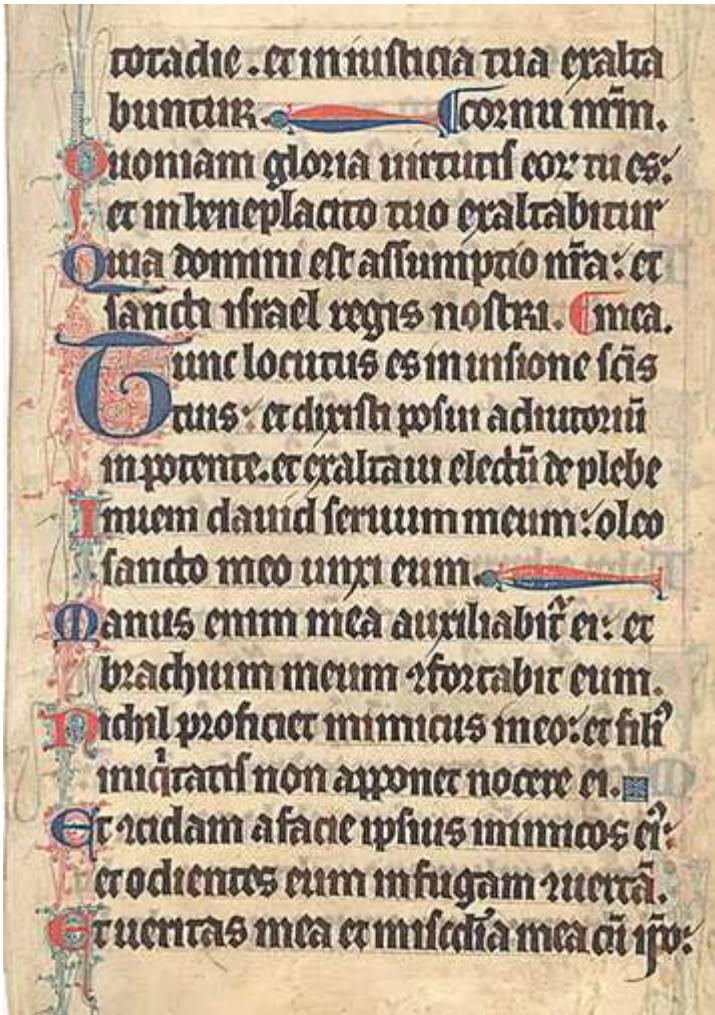 totadie . et in iusticia tua exalta
buntur. ¶ cornu nr̄m.
Quoniam gloria uirtutis eoꝝ tu es:
et in beneplacito tuo exaltabitur
Quia domini est assumptio nr̄a: et
sancti israel regis nostri. ¶ mea.
Tunc locutus es in uisione sc̄is
tuis: et dixisti posui adiutoriū
in potente. et exaltaui electū de plebe
Inueni dauid seruum meum: oleo
sancto meo unxi eum.
Manus enim mea auxiliabit᷑ ei: et
brachium meum ꝯfortabit eum.
Nichil proficiet inimicus in eo: et filiꝰ
iniq̍tatis non apponet nocere ei.
Et ꝯcidam a facie ipsius inimicos eiꝰ:
et odientes eum in fugam ꝯuertā.
Et ueritas mea et misc̄dia mea cū ip̄o: